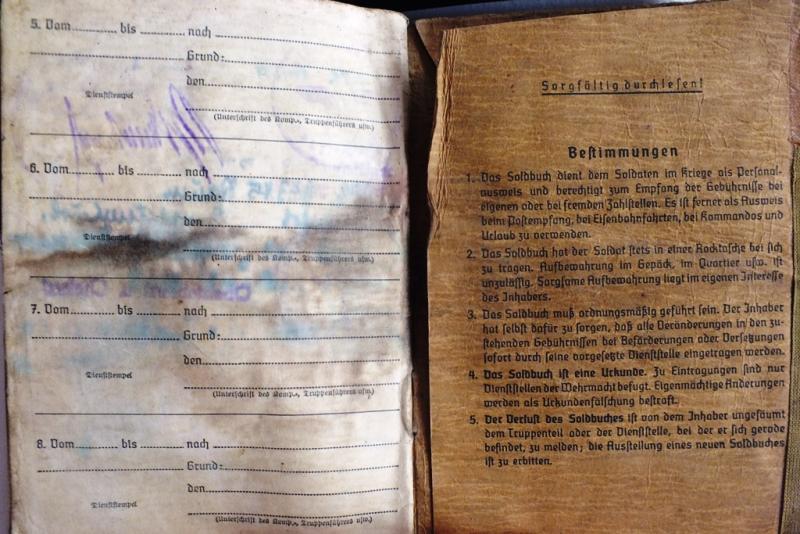 5. Vom ........... bis ........... nach
Grund:
den
Dienststempel
(Unterschrift des Komp., Truppenführers usw.)
6. Vom ........... bis ........... nach
Grund:
den
Dienststempel
(Unterschrift des Komp., Truppenführers usw.)
7. Vom ........... bis ........... nach
Grund:
den
Dienststempel
(Unterschrift des Komp., Truppenführers usw.)
8. Vom ........... bis ........... nach
Grund:
den
Dienststempel
(Unterschrift des Komp., Truppenführers usw.)
Sorgfältig durchlesen!
Bestimmungen
1. Das Soldbuch dient dem Soldaten im Kriege als Personal-
ausweis und berechtigt zum Empfang der Gebührnisse bei
eigenen oder bei fremden Zahlstellen. Es ist ferner als Ausweis
beim Postempfang, bei Eisenbahnfahrten, bei Kommandos und
Urlaub zu verwenden.
2. Das Soldbuch hat der Soldat stets in einer Rocktasche bei sich
zu tragen. Aufbewahrung im Gepäck, im Quartier usw. ist
unzulässig. Sorgsame Aufbewahrung liegt im eigenen Interesse
des Inhabers.
3. Das Soldbuch muß ordnungsmäßig geführt sein. Der Inhaber
hat selbst dafür zu sorgen, daß alle Veränderungen in den zu-
stehenden Gebührnissen bei Beförderungen oder Versetzungen
sofort durch seine vorgesetzte Dienststelle eingetragen werden.
4. Das Soldbuch ist eine Urkunde. Zu Eintragungen sind nur
Dienststellen der Wehrmacht befugt. Eigenmächtige Änderungen
werden als Urkundenfälschung bestraft.
5. Der Verlust des Soldbuches ist von dem Inhaber ungesäumt
dem Truppenteil oder der Dienststelle, bei der er sich gerade
befindet, zu melden; die Ausstellung eines neuen Soldbuches
ist zu erbitten.